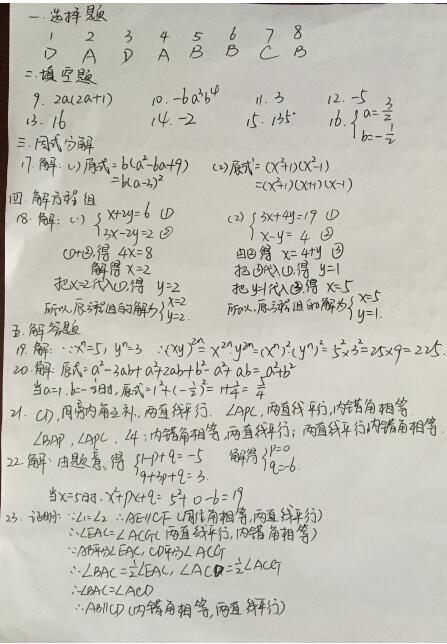 一.选择题
1 2 3 4 5 6 7 8
D A D A B B C B
二.填空题
9. 2a(2a+1) 10. -6a³b⁴ 11. 3 12. -5
13. 16 14. -2 15. 135° 16. { a=3/2 b=-1/2
三.因式分解
17.解:(1)原式=b(a²-6a+9) (2)原式=(x²+1)(x²-1)
=b(a-3)² =(x²+1)(x+1)(x-1)
四.解方程组
18.解:(1) { x+2y=6 ① 3x-2y=2 ② (2) { 3x+4y=19 ① x-y=4 ②
①+②,得 4x=8 由②得 x=4+y ③
解得 x=2 把③代入①,得 y=1
把x=2代入①,得 y=2 把y=1代入③,得 x=5
所以,原方程组的解为 { x=2 y=2. 所以,原方程组的解为 { x=5 y=1.
五.解答题
19.解:∵xⁿ=5, yⁿ=3 ∴(xy)²ⁿ=x²ⁿ·y²ⁿ=(xⁿ)²·(yⁿ)²=5²×3²=25×9=225.
20.解:原式=a²-2ab+a²+2ab+b²-a²+ab=a²+b²
当a=1.b=-1/2时,原式=1²+(-1/2)²=1+1/4=5/4
21. CD,同旁内角互补,两直线平行. ∠APC,两直线平行,内错角相等.
∠BAP,∠APC,∠4;内错角相等,两直线平行;两直线平行,内错角相等
22.解:由题意,得 { 1-p+q=-5 9+3p+q=3. 解得 { p=0 q=-6.
当x=5时,x²+px+q=5²+0-6=19
23.证明:∵∠1=∠2 ∴AE∥CF(同位角相等,两直线平行)
∴∠EAC=∠ACG(两直线平行,内错角相等)
∵AB平分∠EAC,CD平分∠ACG
∴∠BAC=1/2∠EAC,∠ACD=1/2∠ACG
∴∠BAC=∠ACD
∴AB∥CD(内错角相等,两直线平行)